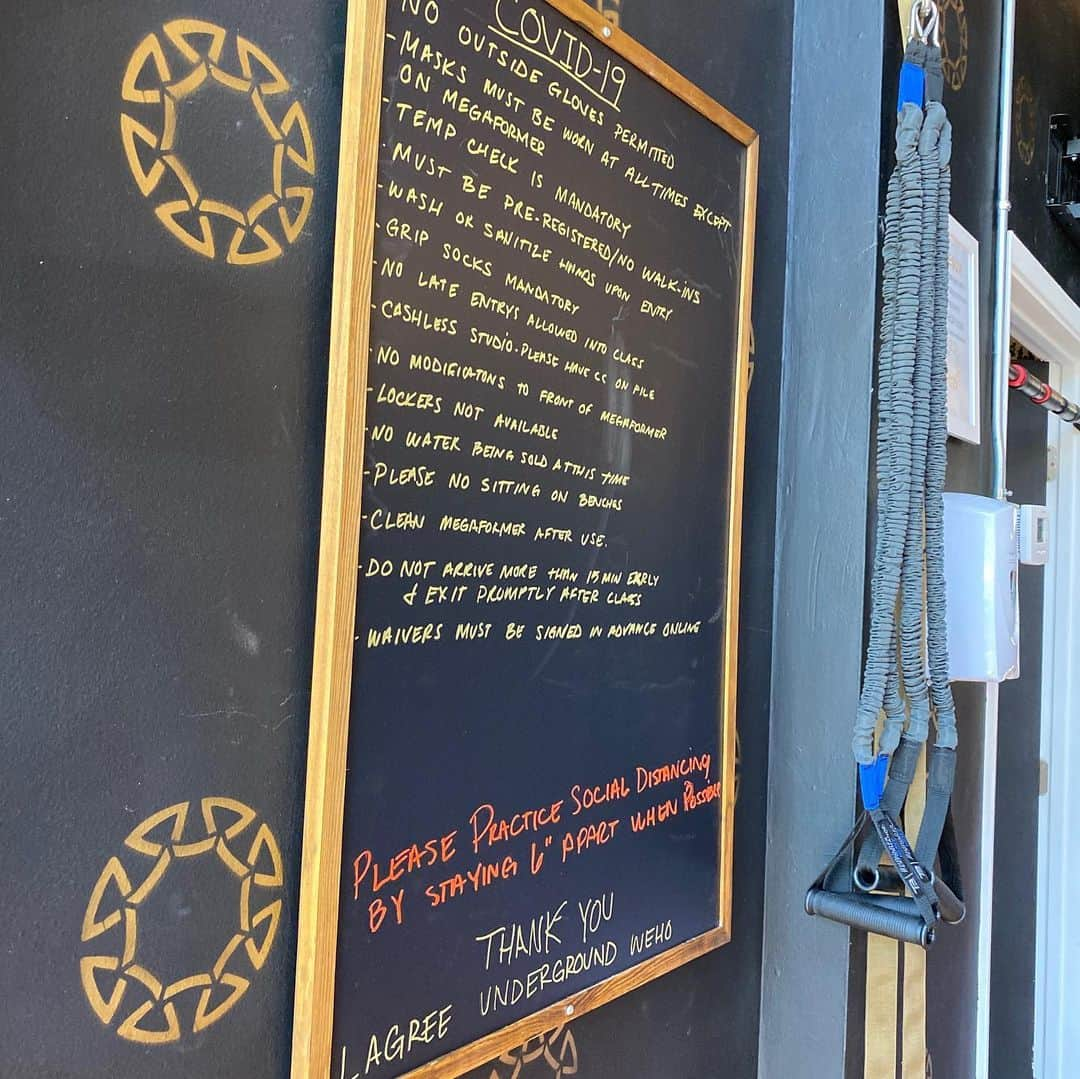 COVID-19
NO OUTSIDE GLOVES PERMITTED
- MASKS MUST BE WORN AT ALL TIMES EXCEPT
ON MEGAFORMER
- TEMP CHECK IS MANDATORY
- MUST BE PRE-REGISTERED/NO WALK-INS
- WASH OR SANITIZE HANDS UPON ENTRY
- GRIP SOCKS MANDATORY
- NO LATE ENTRYS ALLOWED INTO CLASS
- CASHLESS STUDIO-PLEASE HAVE CC ON FILE
- NO MODIFICATONS TO FRONT OF MEGAFORMER
- LOCKERS NOT AVAILABLE
- NO WATER BEING SOLD AT THIS TIME
- PLEASE NO SITTING ON BENCHES
- CLEAN MEGAFORMER AFTER USE.
- DO NOT ARRIVE MORE THAN 15 MIN EARLY
& EXIT PROMPTLY AFTER CLASS
- WAIVERS MUST BE SIGNED IN ADVANCE ONLINE
PLEASE PRACTICE SOCIAL DISTANCING
BY STAYING 6" APART WHEN POSSIBLE
THANK YOU
LAGREE UNDERGROUND WEHO